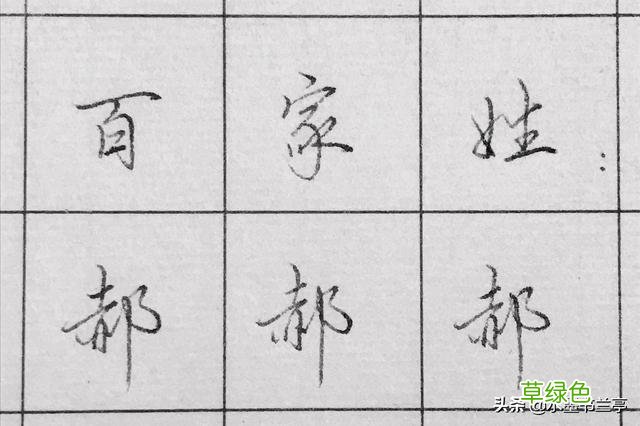 百家姓：
郝郝郝
草绿色
头条 @小楷书兰亭